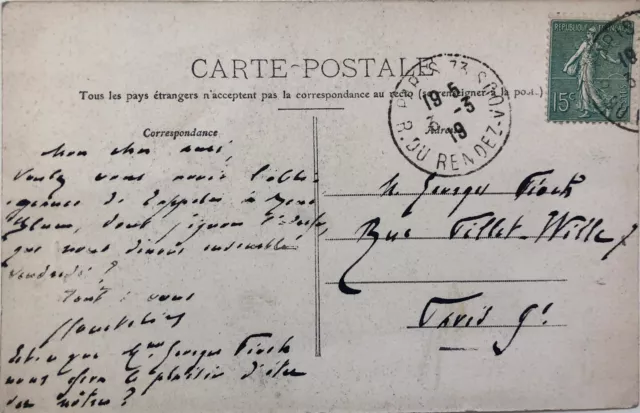 CARTE-POSTALE
Tous les pays étrangers n'acceptent pas la correspondance au recto (se renseigner à la poste.)
Correspondance
Adresse
PARIS 73
19 5
3 -3
19
R. DU RENDEZ-VOUS
REPUBLIQUE FRANÇAISE
15c
Mon cher ami,
Voulez vous avoir l'obli-
geance de rappeler à
Blum, dont j'ignore l'adresse,
que nous dinons ensemble
vendredi?
Tout à vous
Est-ce que Mme Georges Fioch
nous fera le plaisir d'être
des nôtres?
M Georges Fioch
Rue Tillet-Wille 7
Paris 9e